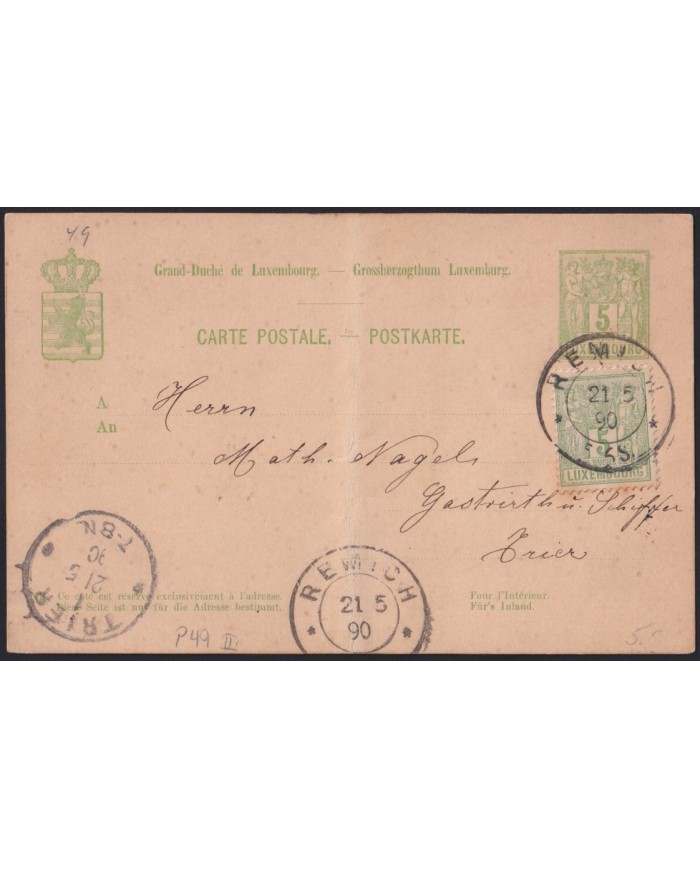 49
Grand-Duché de Luxembourg. — Grossherzogthum Luxemburg.
5
LUXEMBOURG
CARTE POSTALE. — POSTKARTE.
REMICH
21 5
90
5-6S.
5
LUXEMBOURG
A
An
Herrn
Math. Nagels
Gastwirth u. Schiffer
Trier
TRIER
21 5
90
7-8N
REMICH
21 5
90
Ce côté est réservé exclusivement à l'adresse.
Diese Seite ist nur für die Adresse bestimmt.
Pour l'Intérieur.
Für's Inland.
P49 II
5.-